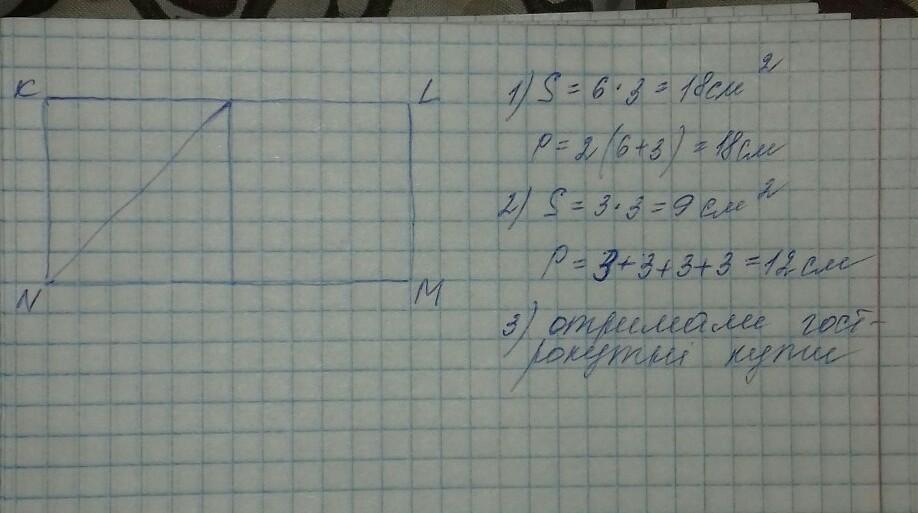 K L
N M
1) S = 6 · 3 = 18 см²
P = 2(6+3) = 18 см
2) S = 3 · 3 = 9 см²
P = 3+3+3+3 = 12 см
3) отримали гост-
рокутні кути